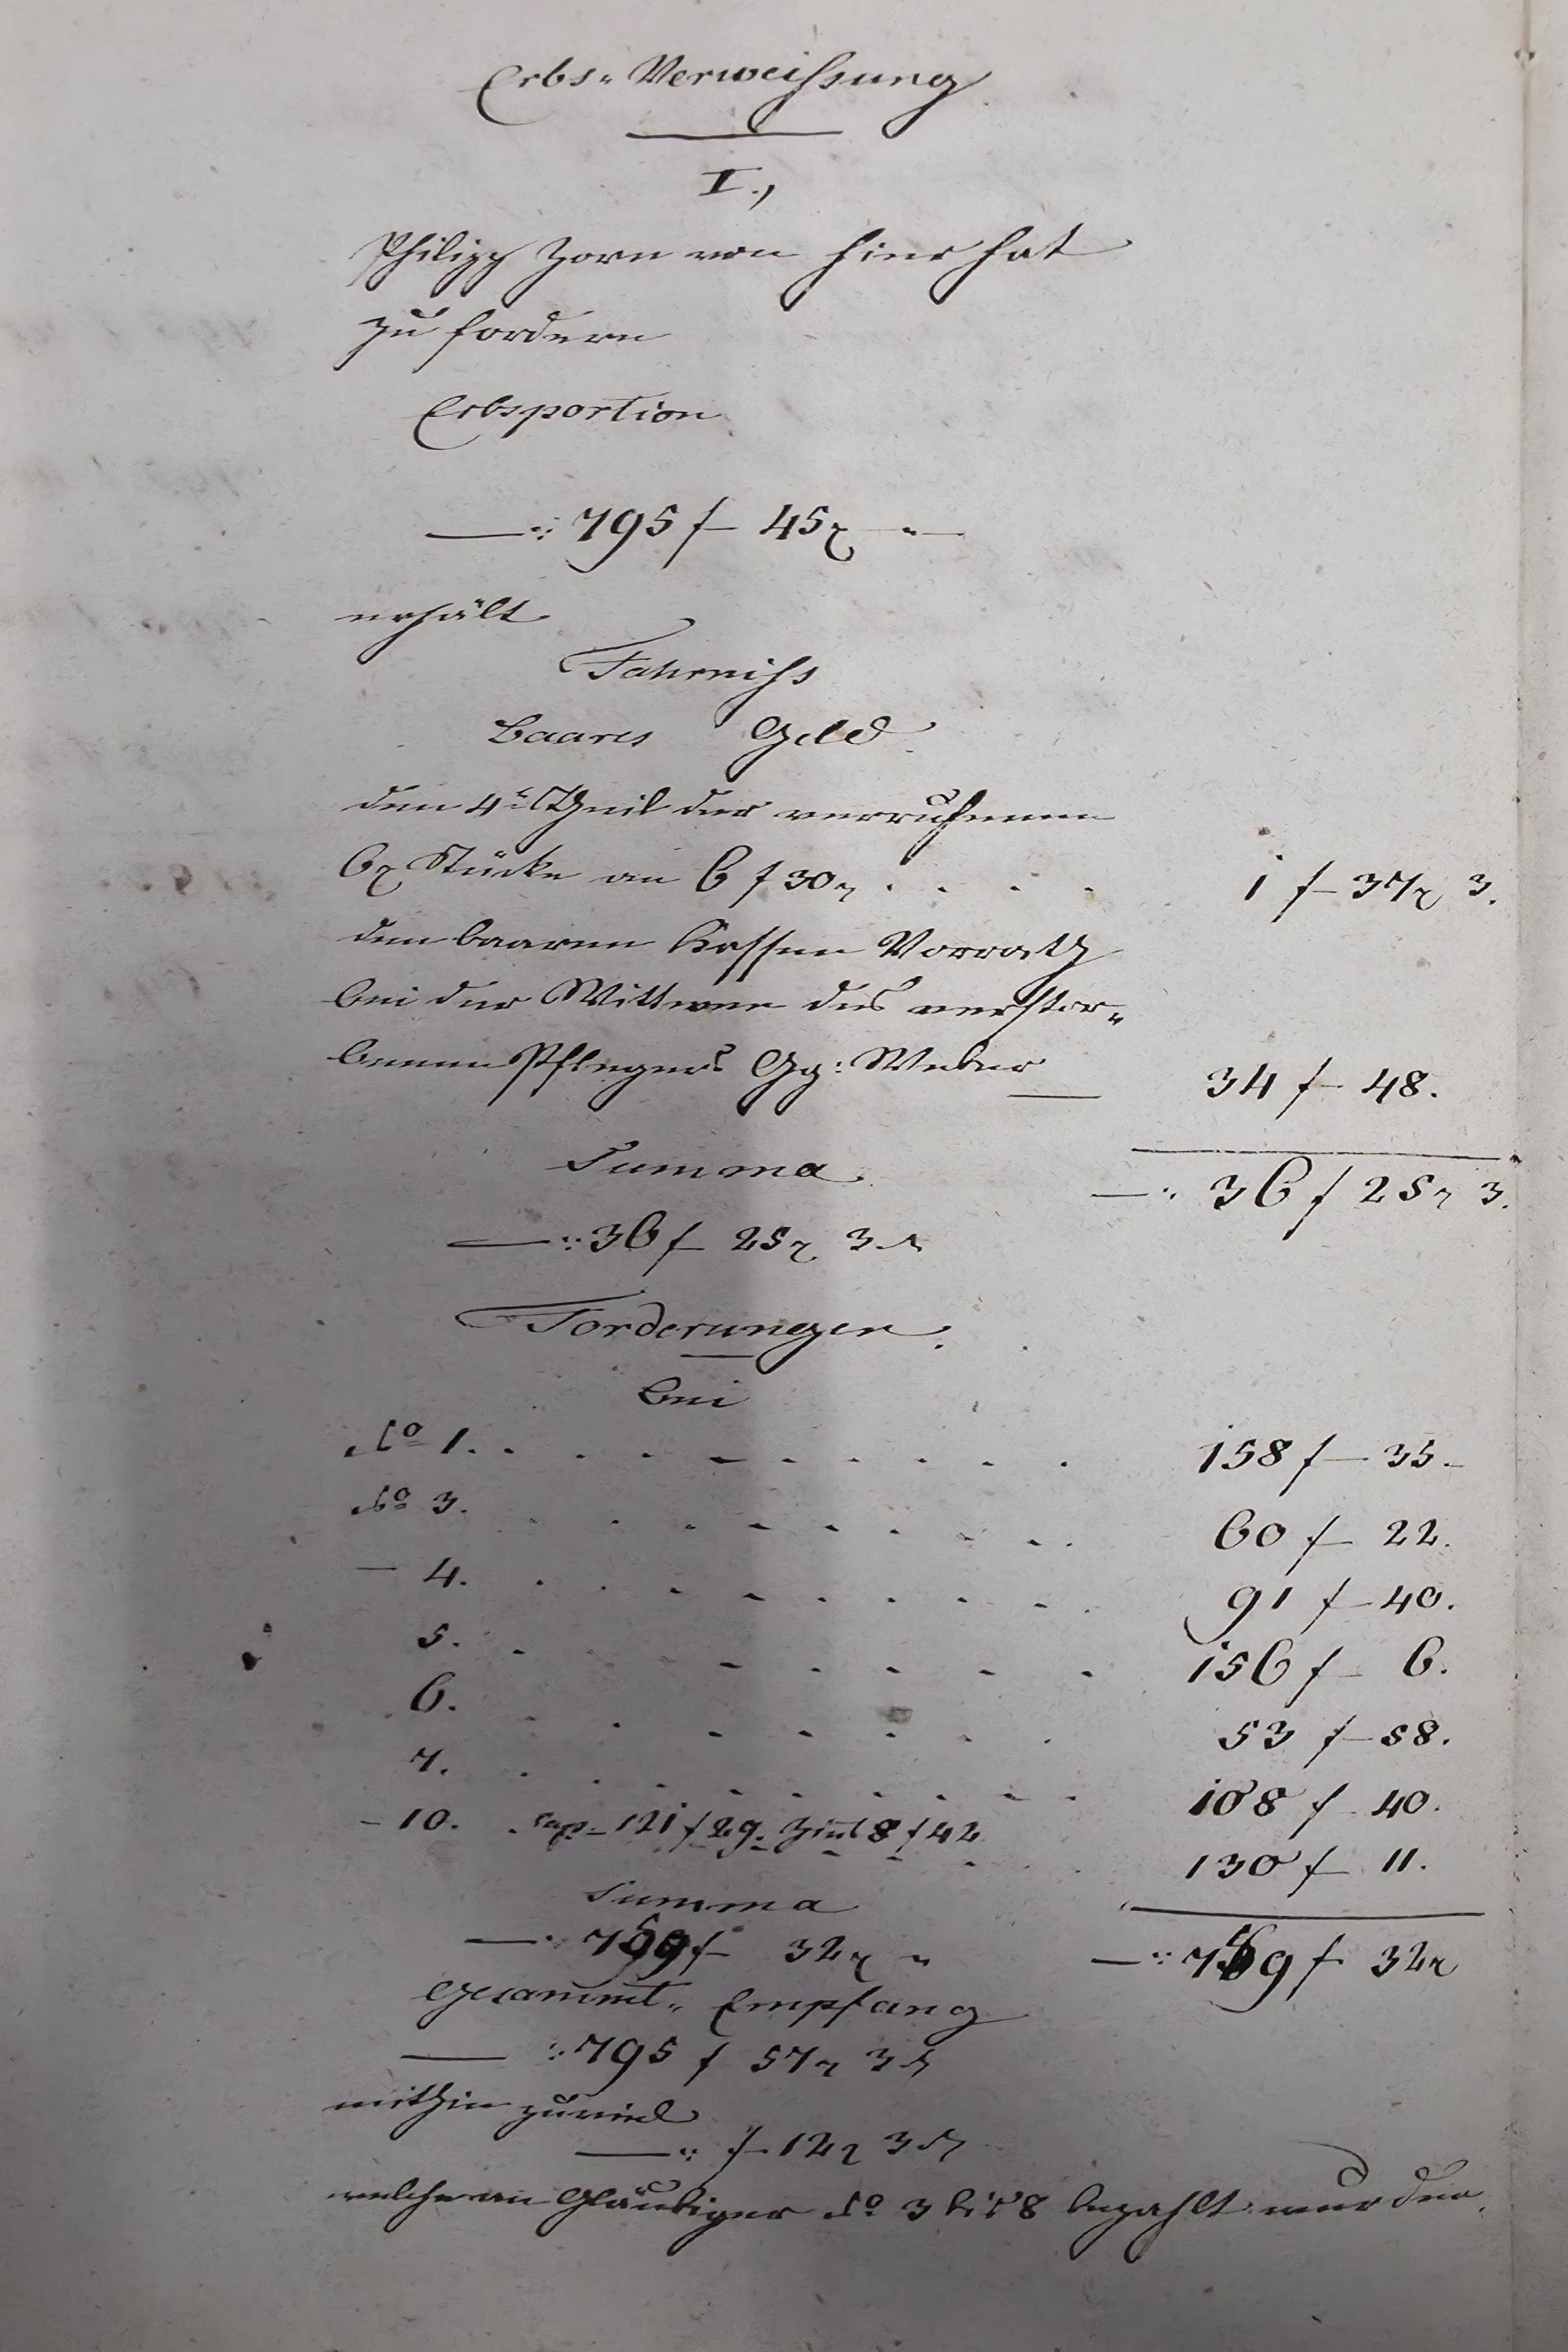 Erbs-Verweißung
I.,
Philipp Zorn von hier hat
zu fordern
Erbsportion
—: 795 f 45 x "—
erhält
Fahrniß
Baares Geld
den 4t Theil der verrufenen
6x Stücke an 6 f 30 x . . . . 1 f 37 x 3.
den baaren Kassen Vorrath
bei der Wittwen des verstor-
benen Pflegers Gg: Weber — 34 f 48.
Summa —: 36 f 25 x 3.
—: 36 f 25 x 3 ₰
Forderungen.
bei
No 1. . . . . . . . . . 158 f 35.
No 3. . . . . . . . . . 60 f 22.
— 4. . . . . . . . . . 91 f 40.
5. . . . . . . . . 156 f 6.
6. . . . . . . . 53 f 58.
7. . . . . . . . . . 108 f 40.
— 10. . Cap. 121 f 29. Zins 8 f 42 . . 130 f 11.
Summa
—: 759 f 32 x " —: 759 f 32 x
Gesammt-Empfang
—: 795 f 57 x 3 ₰
mithin zuviel
—: f 12 x 3 ₰
welche an Gläubiger No 3 bis 8 bezahlt werden.